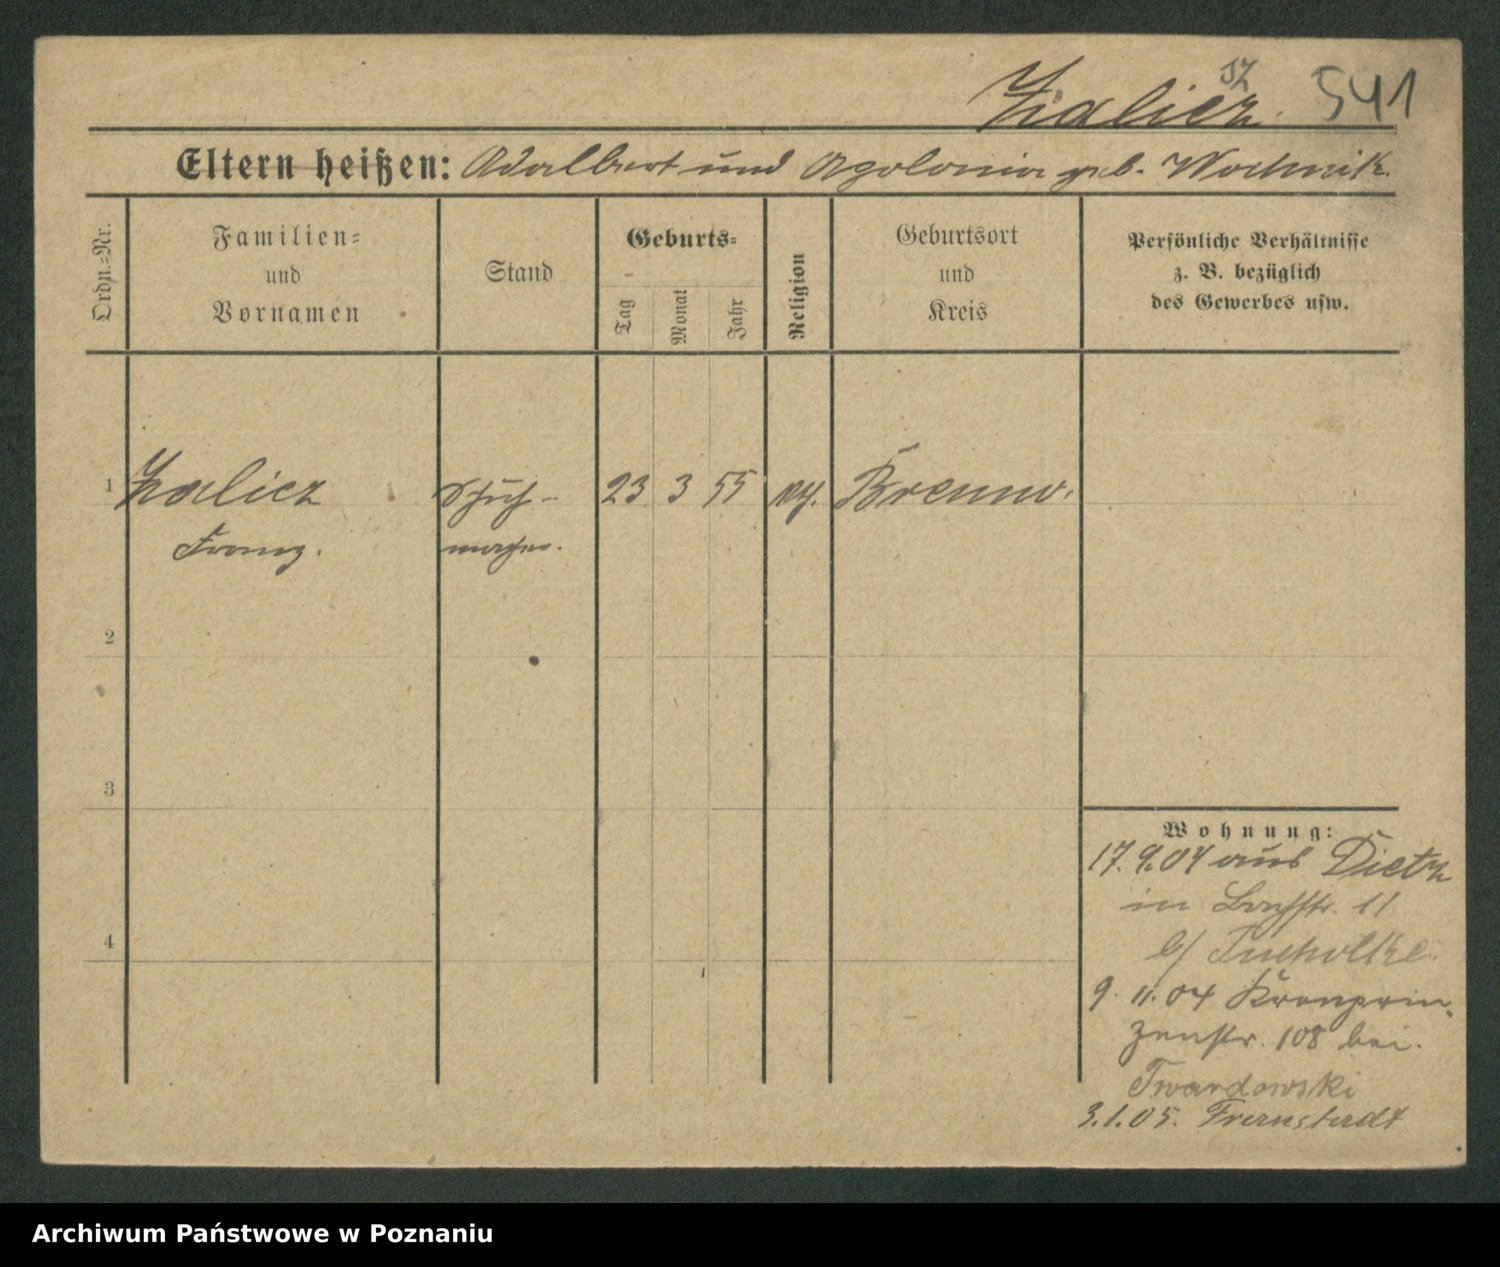 SZ
Zalicz. 541
Eltern heißen: Adalbert und Apolonia geb. Wochnik
Ordn.-Nr.
Familien-
und
Vornamen
Stand
Geburts-
Tag
Monat
Jahr
Religion
Geburtsort
und
Kreis
Persönliche Verhältnisse
z. B. bezüglich
des Gewerbes usw.
1 Zalicz Schuh- 23 3 55 Brenno.
Franz. macher.
2
3
4
Wohnung:
17.9.04 aus Dietz
in 11
b/ Tucholke.
9. 11. 04 Kronprin-
zenstr. 108 bei.
Twardowski
3.1.05. Fraustadt
Archiwum Państwowe w Poznaniu